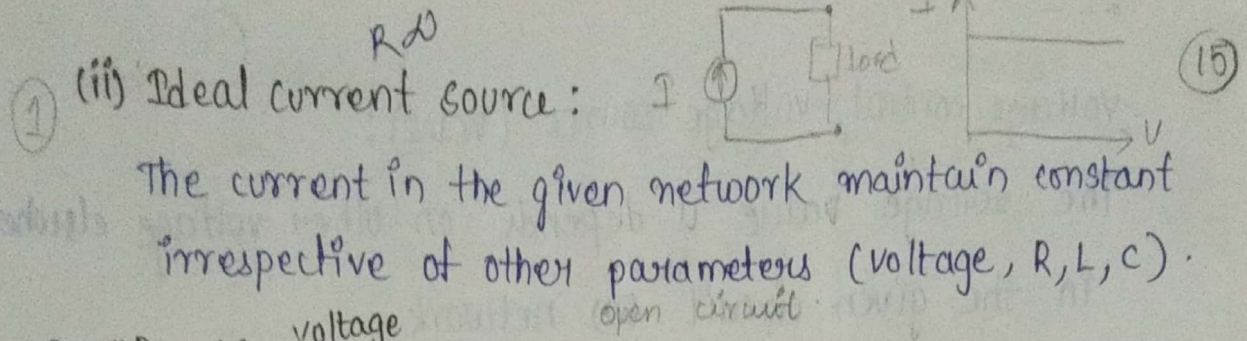 R∞
I
(ii) Ideal current source : I load (15)
(1)
V
The current in the given network maintain constant
irrespective of other parameters (voltage, R, L, C).
open circuit.
voltage